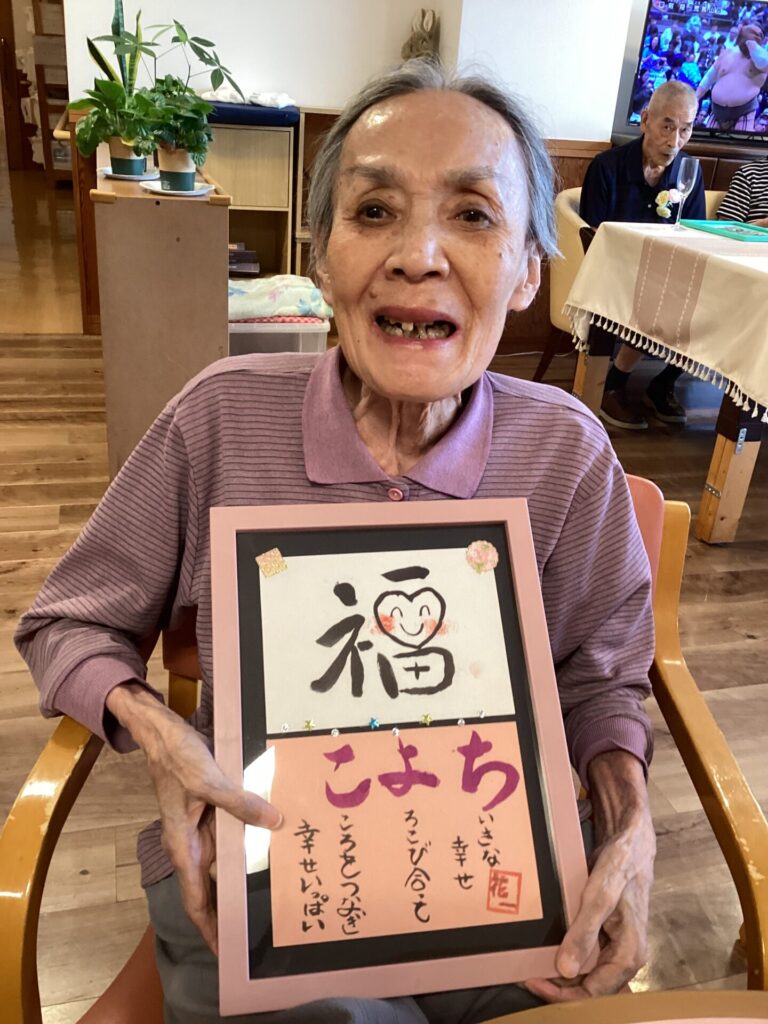 福
ちよこ
いさな
幸せ
ろこび合って
ころをつなぎ
幸せいっぱい
花一